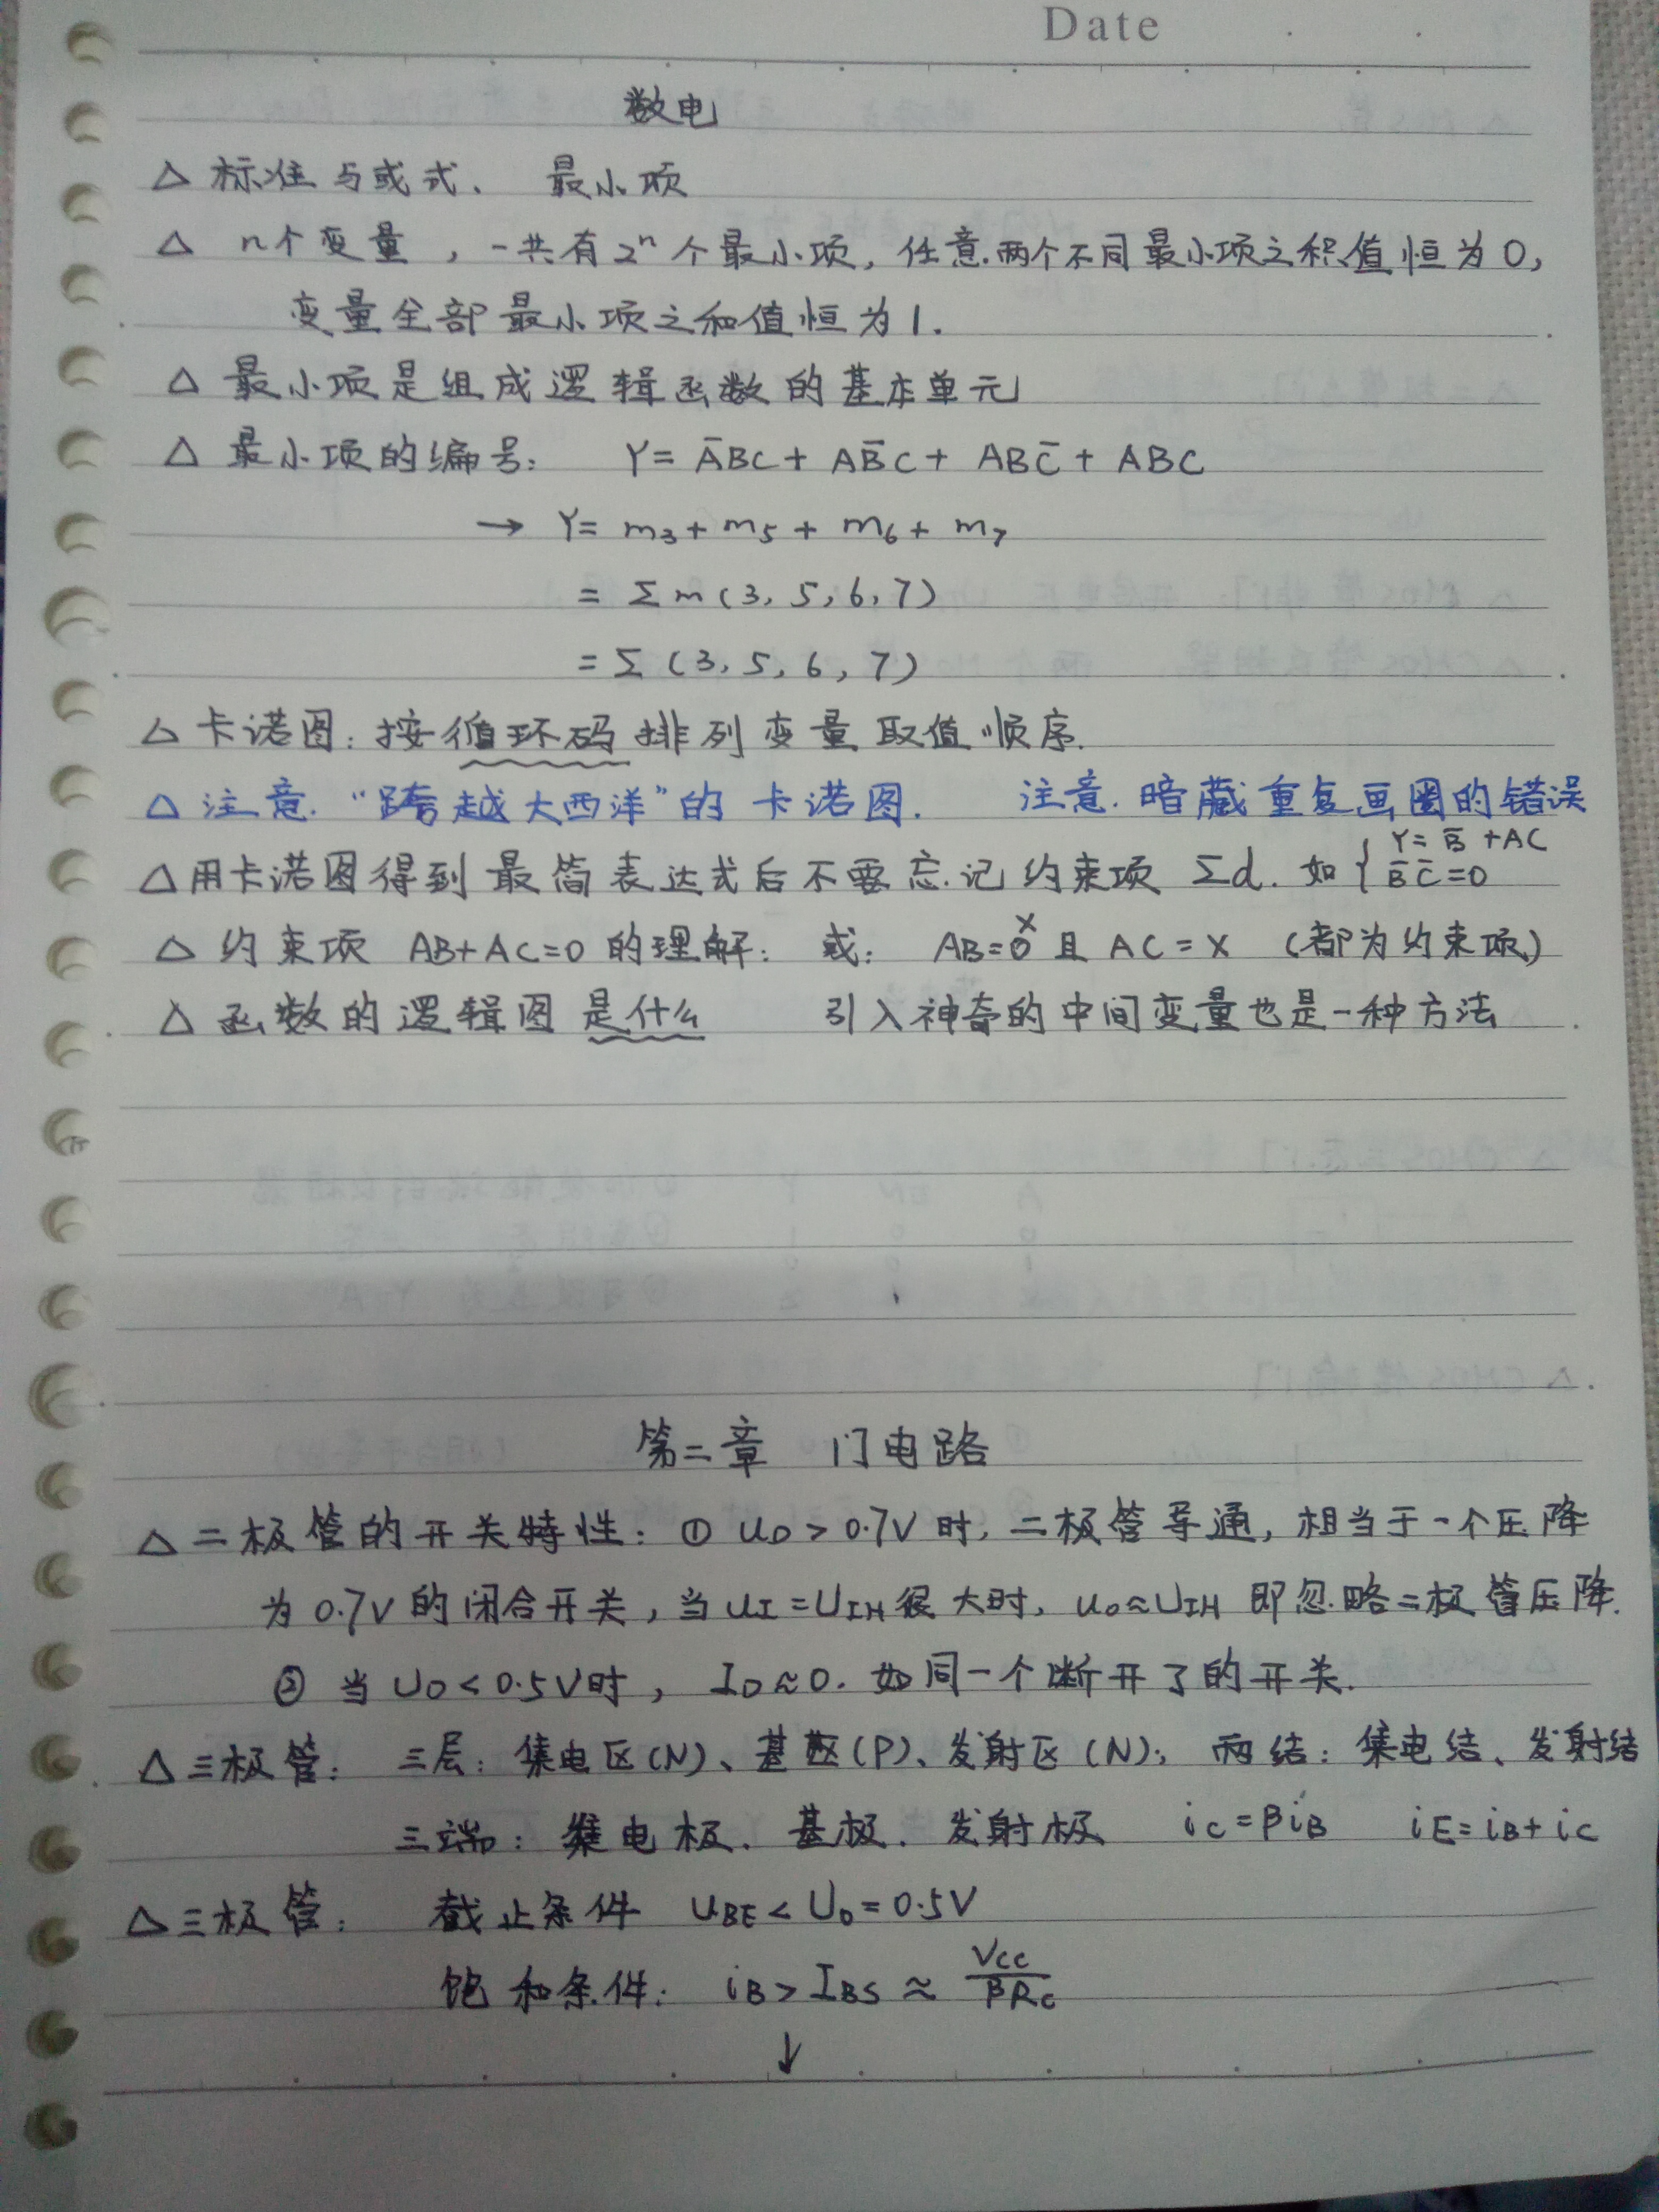 Date
数电
△ 标准与或式、 最小项
△ n个变量，一共有2ⁿ个最小项，任意两个不同最小项之积值恒为0，
变量全部最小项之和值恒为1.
△ 最小项是组成逻辑函数的基本单元
△ 最小项的编号： Y= A̅BC + AB̅C + ABC̅ + ABC
→ Y= m₃ + m₅ + m₆ + m₇
= Σm(3, 5, 6, 7)
= Σ(3, 5, 6, 7)
△ 卡诺图：按循环码排列变量取值顺序.
△ 注意. “跨越大西洋”的卡诺图. 注意. 暗藏重复画圈的错误
△ 用卡诺图得到最简表达式后不要忘记约束项 Σd. 如 { Y= B̅ +AC
B̅ C̅ =0
△ 约束项 AB+AC=0 的理解： 或： AB=0 x 且 AC = x （都为约束项）
△ 函数的逻辑图是什么 引入神奇的中间变量也是一种方法
第二章 门电路
△ 二极管的开关特性：① uD > 0.7V 时，二极管导通，相当于一个压降
为 0.7V 的闭合开关，当 uI = UIH 很大时，uo ≈ UIH 即忽略二极管压降.
② 当 UD < 0.5V 时， ID ≈ 0. 如同一个断开了的开关.
△ 三极管： 三层：集电区(N)、基区(P)、发射区(N)； 两结：集电结、发射结
三端：集电极、基极、发射极 iC = βiB iE = iB + iC
△ 三极管： 截止条件 uBE < U0 = 0.5V
饱和条件： iB > IBS ≈ VCC/βRC
↓